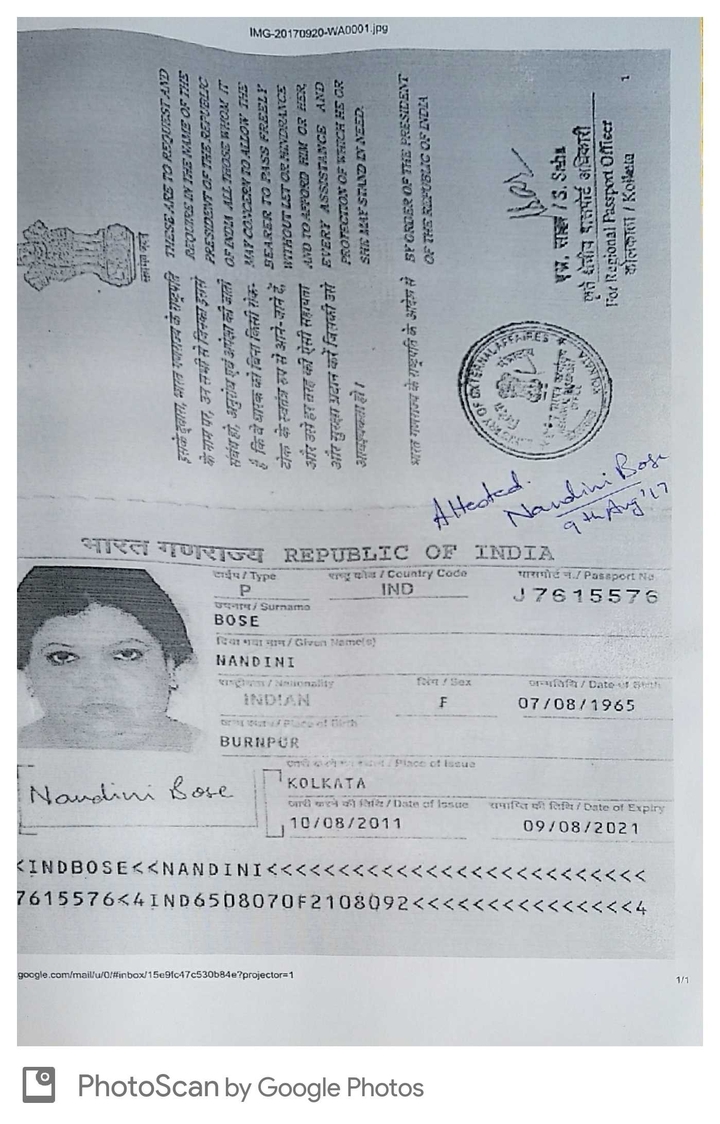 IMG-20170920-WA0001.jpg
सत्यमेव जयते
THESE ARE TO REQUEST AND
REQUIRE IN THE NAME OF THE
PRESIDENT OF THE REPUBLIC
OF INDIA ALL THOSE WHOM IT
MAY CONCERN TO ALLOW THE
BEARER TO PASS FREELY
WITHOUT LET OR HINDRANCE
AND TO AFFORD HIM OR HER,
EVERY ASSISTANCE AND
PROTECTION OF WHICH HE OR
SHE MAY STAND IN NEED.
BY ORDER OF THE PRESIDENT
OF THE REPUBLIC OF INDIA
इसके द्वारा, भारत गणराज्य के राष्ट्रपति
के नाम पर, उन सभी से जिनका इससे
संबंध हो, अनुरोध एवं अपेक्षा की जाती
है कि वे धारक को बिना किसी रोक-
टोक के स्वतंत्र रूप से आने-जाने दें,
और उसे हर तरह की ऐसी सहायता
और सुरक्षा प्रदान करें जिसकी उसे
आवश्यकता हो।
भारत गणराज्य के राष्ट्रपति के आदेश से
एस. साहा / S. Saha
कृते क्षेत्रीय पासपोर्ट अधिकारी
For Regional Passport Officer
कोलकाता / Kolkata
1
MINISTRY OF EXTERNAL AFFAIRES
KOLKATA
Attested.
Nandini Bose
9th Aug'17
भारत गणराज्य REPUBLIC OF INDIA
टाईप / Type
राष्ट्र कोड / Country Code
पासपोर्ट नं. / Passport No.
P
IND
J7615576
उपनाम / Surname
BOSE
दिया गया नाम / Given Name(s)
NANDINI
राष्ट्रीयता / Nationality
लिंग / Sex
जन्मतिथि / Date of Birth
INDIAN
F
07/08/1965
जन्म स्थान / Place of Birth
BURNPUR
Nandini Bose
/ Place of Issue
KOLKATA
जारी करने की तिथि / Date of Issue
समाप्ति की तिथि / Date of Expiry
10/08/2011
09/08/2021
<INDBOSE<<NANDINI<<<<<<<<<<<<<<<<<<<<<<<<<<
7615576<4IND6508070F2108092<<<<<<<<<<<<<<<4
google.com/mail/u/0/#inbox/15e9fc47c530b84e?projector=1
1/1
PhotoScan by Google Photos